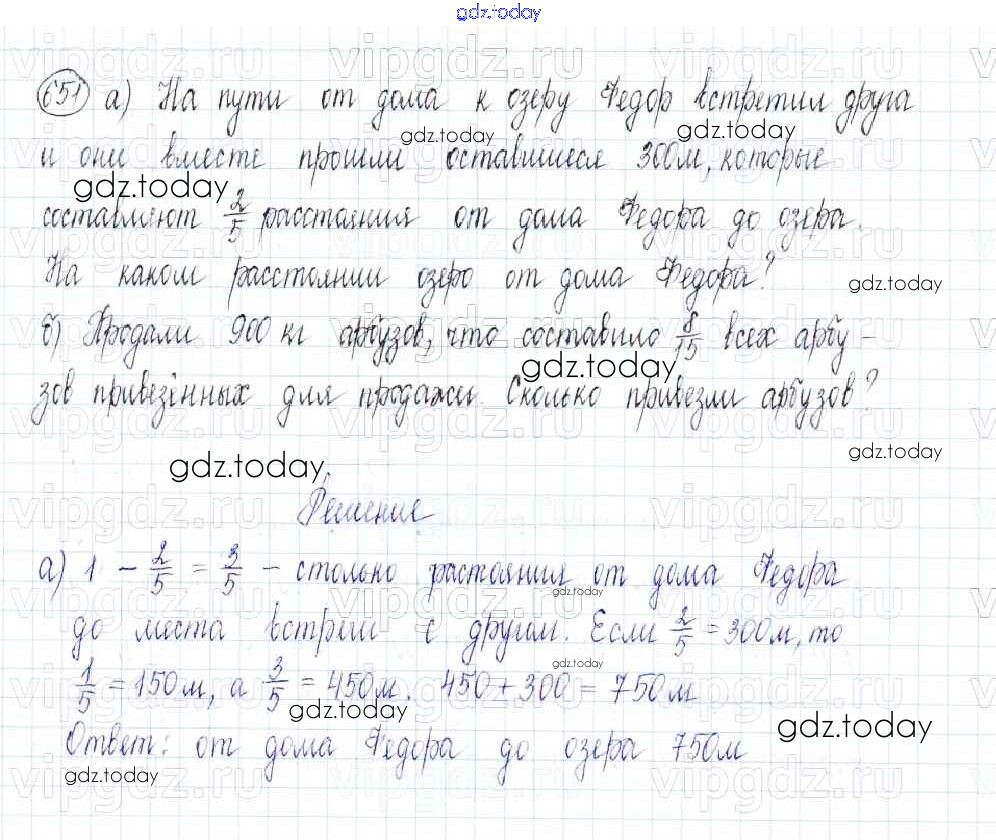 gdz.today
651 а) На пути от дома к озеру Федор встретил друга
gdz.today gdz.today
и они вместе прошли оставшиеся 300м, которые
gdz.today
составляют 2/5 расстояния от дома Федора до озера.
На каком расстоянии озеро от дома Федора?
gdz.today
б) Продали 900 кг арбузов, что составило 8/15 всех арбу -
gdz.today
зов привезённых для продажи. Сколько привезли арбузов?
gdz.today
gdz.today
Решение
а) 1 - 2/5 = 3/5 - столько растояния от дома Федора
gdz.today
до места встречи с другом. Если 2/5 = 300м, то
gdz.today
1/5 = 150м, а 3/5 = 450м. 450 + 300 = 750м
gdz.today
gdz.today
Ответ: от дома Федора до озера 750м
gdz.today
vipgdz.ru vipgdz.ru vipgdz.ru